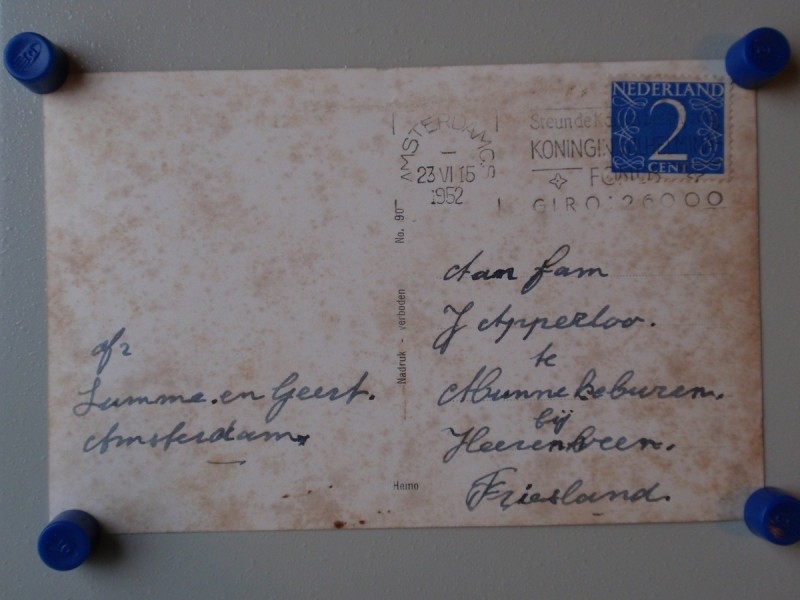 NEDERLAND
2
CENT
AMSTERDAM C.S.
23 VI 15
1952
Steun de
KONINGI
GIRO: 26000
No. 90
Nadruk - verboden
Hemo
Aan fam
J Apperloo.
te
Munnekeburen.
bij
Heerenveen.
Friesland.
afz
Lumme. en Geert.
Amsterdam